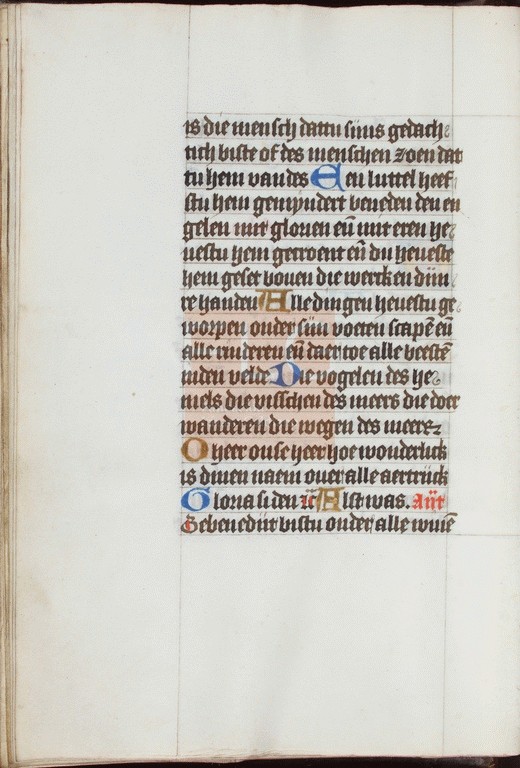 is die mensch dattu sijns gedach
tich biste of des menschen zoen dat
tu hem vandes Een luttel heef
stu hem gemyndert beneden den en
gelen mit glorien en̄ mit eren he
uestu hem gecroent en̄ du heueste
hem geset bouen die wercken dijn
re handen Alle dingen heuestu ge
worpen onder sijn voeten scapē en̄
alle runderen en̄ daer toe alle beestē
inden velde Die vogelen des he
mels die visschen des meers die doer
wanderen die wegen des meers
O heer onse heer hoe wonderlick
is dinen naem ouer alle aertrijck
Gloria si den rc̄ Alst was. Ant̄
Gebenedijt bistu onder alle wiuē